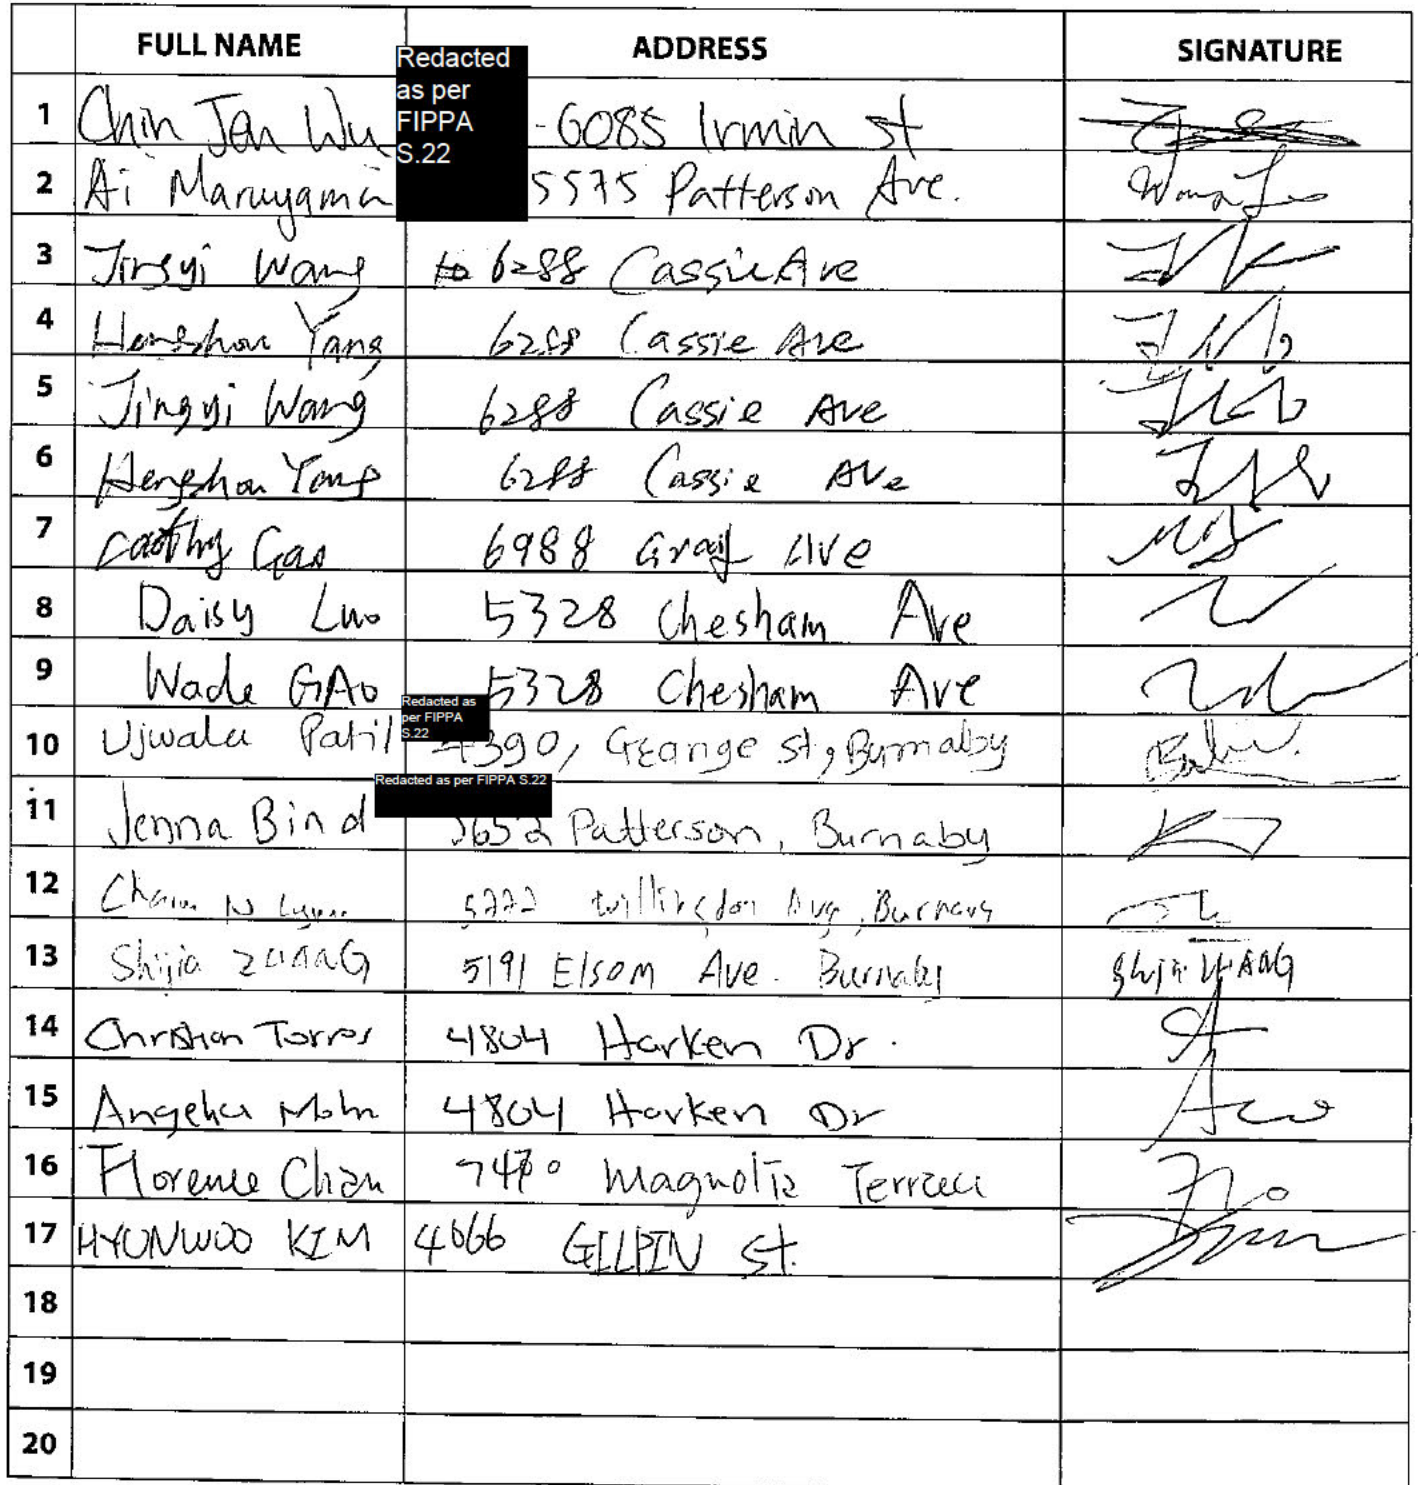 FULL NAME ADDRESS SIGNATURE
Redacted
as per
FIPPA
S.22
1 Chin Jen Wu - 6085 Irmin st
2 Ai Maruyama 5575 Patterson Ave.
3 Jingyi Wang 6288 Cassie Ave
4 Hengshou Yang 6288 Cassie Ave
5 Jingyi Wang 6288 Cassie Ave
6 Hengshou Yang 6288 Cassie Ave
7 Cathy Gao 6988 Gray Ave
8 Daisy Luo 5328 Chesham Ave
9 Wade GAo 5328 Chesham Ave
Redacted as
per FIPPA
S.22
10 Ujwala Patil 4390, George st, Burnaby
Redacted as per FIPPA S.22
11 Jenna Bind 5652 Patterson, Burnaby
12 Willingdon Ave, Burnaby
13 Shijia 5191 Elsom Ave. Burnaby
14 Christian Torres 4804 Harken Dr.
15 Angelica 4804 Harken Dr
16 Florence Chan Magnolia Terrace
17 HYUNWOO KIM 4666 GILPIN st.
18
19
20